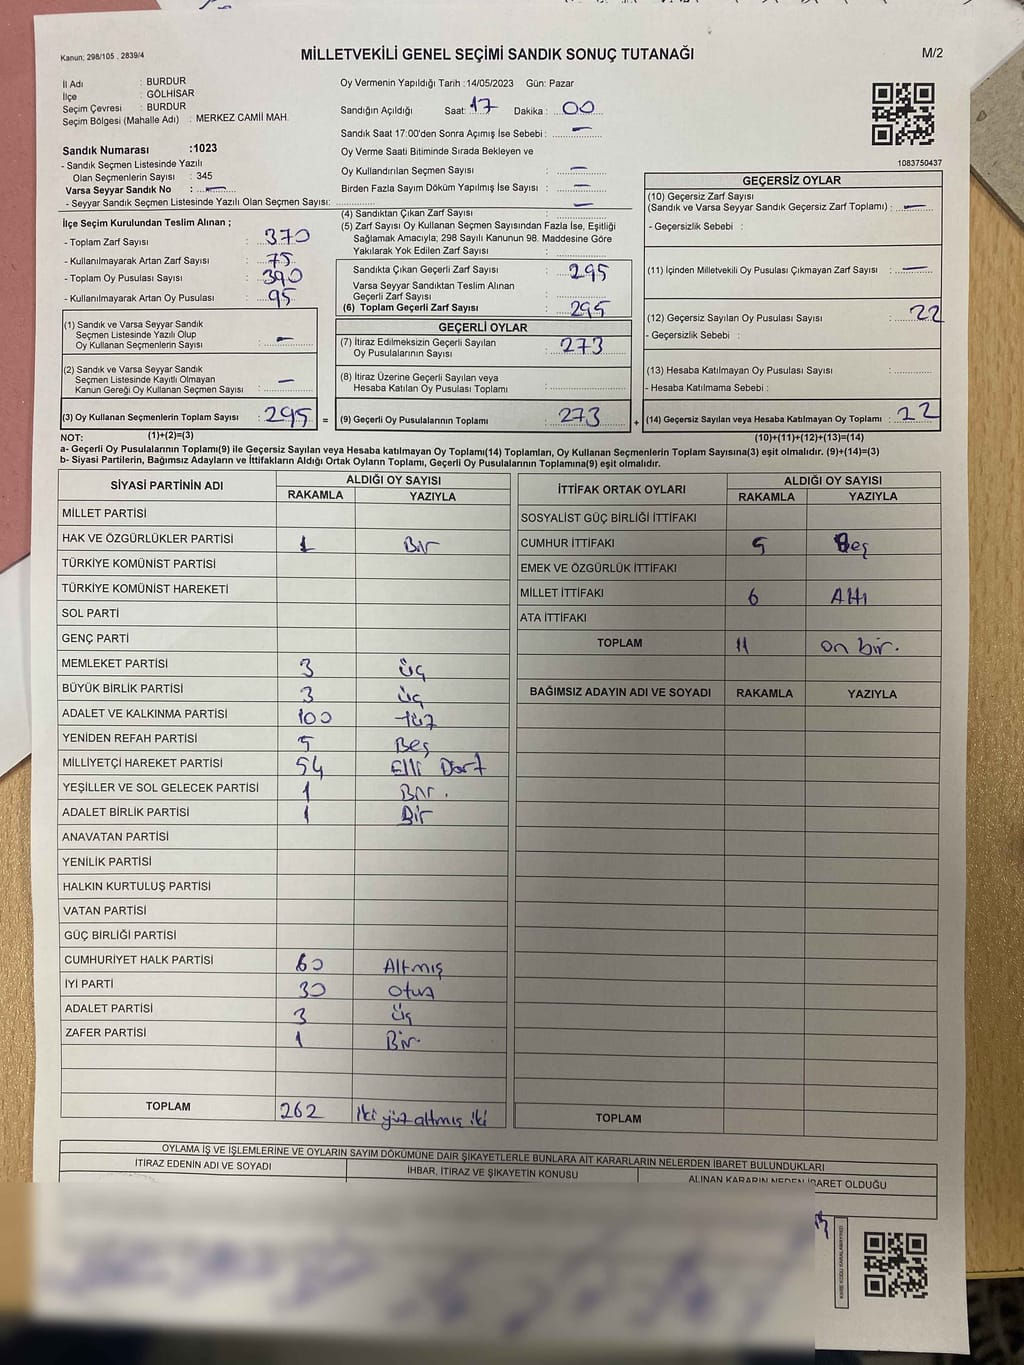 Kanun: 298/105 , 2839/4
MİLLETVEKİLİ GENEL SEÇİMİ SANDIK SONUÇ TUTANAĞI
M/2
İl Adı : BURDUR
İlçe : GÖLHİSAR
Seçim Çevresi : BURDUR
Seçim Bölgesi (Mahalle Adı) : MERKEZ CAMİİ MAH.
Sandık Numarası :1023
- Sandık Seçmen Listesinde Yazılı
Olan Seçmenlerin Sayısı : 345
Varsa Seyyar Sandık No : —
- Seyyar Sandık Seçmen Listesinde Yazılı Olan Seçmen Sayısı:
Oy Vermenin Yapıldığı Tarih :14/05/2023 Gün: Pazar
Sandığın Açıldığı Saat: 17 Dakika : 00
Sandık Saat 17:00'den Sonra Açımış İse Sebebi : —
Oy Verme Saati Bitiminde Sırada Bekleyen ve
Oy Kullandırılan Seçmen Sayısı : —
Birden Fazla Sayım Döküm Yapılmış İse Sayısı : —
—
1083750437
İlçe Seçim Kurulundan Teslim Alınan ;
- Toplam Zarf Sayısı : 370
- Kullanılmayarak Artan Zarf Sayısı : 75
- Toplam Oy Pusulası Sayısı : 390
- Kullanılmayarak Artan Oy Pusulası : 95
(1) Sandık ve Varsa Seyyar Sandık
Seçmen Listesinde Yazılı Olup
Oy Kullanan Seçmenlerin Sayısı : —
(2) Sandık ve Varsa Seyyar Sandık
Seçmen Listesinde Kayıtlı Olmayan
Kanun Gereği Oy Kullanan Seçmen Sayısı : —
(3) Oy Kullanan Seçmenlerin Toplam Sayısı : 295 =
(4) Sandıktan Çıkan Zarf Sayısı :
(5) Zarf Sayısı Oy Kullanan Seçmen Sayısından Fazla İse, Eşitliği
Sağlamak Amacıyla; 298 Sayılı Kanunun 98. Maddesine Göre
Yakılarak Yok Edilen Zarf Sayısı :
Sandıkta Çıkan Geçerli Zarf Sayısı : 295
Varsa Seyyar Sandıktan Teslim Alınan
Geçerli Zarf Sayısı :
(6) Toplam Geçerli Zarf Sayısı : 295
GEÇERLİ OYLAR
(7) İtiraz Edilmeksizin Geçerli Sayılan
Oy Pusulalarının Sayısı : 273
(8) İtiraz Üzerine Geçerli Sayılan veya
Hesaba Katılan Oy Pusulası Toplamı :
(9) Geçerli Oy Pusulalarının Toplamı : 273 +
GEÇERSİZ OYLAR
(10) Geçersiz Zarf Sayısı
(Sandık ve Varsa Seyyar Sandık Geçersiz Zarf Toplamı) : —
- Geçersizlik Sebebi :
(11) İçinden Milletvekili Oy Pusulası Çıkmayan Zarf Sayısı : —
(12) Geçersiz Sayılan Oy Pusulası Sayısı : 22
- Geçersizlik Sebebi :
(13) Hesaba Katılmayan Oy Pusulası Sayısı :
- Hesaba Katılmama Sebebi :
(14) Geçersiz Sayılan veya Hesaba Katılmayan Oy Toplamı : 22
NOT: (1)+(2)=(3)
(10)+(11)+(12)+(13)=(14)
a- Geçerli Oy Pusulalarının Toplamı(9) ile Geçersiz Sayılan veya Hesaba Katılmayan Oy Toplamı(14) Toplamları, Oy Kullanan Seçmenlerin Toplam Sayısına(3) eşit olmalıdır. (9)+(14)=(3)
b- Siyasi Partilerin, Bağımsız Adayların ve İttifakların Aldığı Ortak Oyların Toplamı, Geçerli Oy Pusulalarının Toplamına(9) eşit olmalıdır.
SİYASİ PARTİNİN ADI ALDIĞI OY SAYISI
RAKAMLA YAZIYLA
MİLLET PARTİSİ
HAK VE ÖZGÜRLÜKLER PARTİSİ 1 Bir
TÜRKİYE KOMÜNİST PARTİSİ
TÜRKİYE KOMÜNİST HAREKETİ
SOL PARTİ
GENÇ PARTİ
MEMLEKET PARTİSİ 3 üç
BÜYÜK BİRLİK PARTİSİ 3 üç
ADALET VE KALKINMA PARTİSİ 100 yüz
YENİDEN REFAH PARTİSİ 5 Beş
MİLLİYETÇİ HAREKET PARTİSİ 54 Elli Dört
YEŞİLLER VE SOL GELECEK PARTİSİ 1 Bir.
ADALET BİRLİK PARTİSİ 1 Bir
ANAVATAN PARTİSİ
YENİLİK PARTİSİ
HALKIN KURTULUŞ PARTİSİ
VATAN PARTİSİ
GÜÇ BİRLİĞİ PARTİSİ
CUMHURİYET HALK PARTİSİ 60 Altmış
İYİ PARTİ 30 otuz
ADALET PARTİSİ 3 üç
ZAFER PARTİSİ 1 Bir.
TOPLAM 262 iki yüz altmış iki
İTTİFAK ORTAK OYLARI ALDIĞI OY SAYISI
RAKAMLA YAZIYLA
SOSYALİST GÜÇ BİRLİĞİ İTTİFAKI
CUMHUR İTTİFAKI 5 Beş
EMEK VE ÖZGÜRLÜK İTTİFAKI
MİLLET İTTİFAKI 6 Altı
ATA İTTİFAKI
TOPLAM 11 on bir.
BAĞIMSIZ ADAYIN ADI VE SOYADI RAKAMLA YAZIYLA
TOPLAM
OYLAMA İŞ VE İŞLEMLERİNE VE OYLARIN SAYIM DÖKÜMÜNE DAİR ŞİKAYETLERLE BUNLARA AİT KARARLARIN NELERDEN İBARET BULUNDUKLARI
İTİRAZ EDENİN ADI VE SOYADI İHBAR, İTİRAZ VE ŞİKAYETİN KONUSU ALINAN KARARIN NEDEN İBARET OLDUĞU